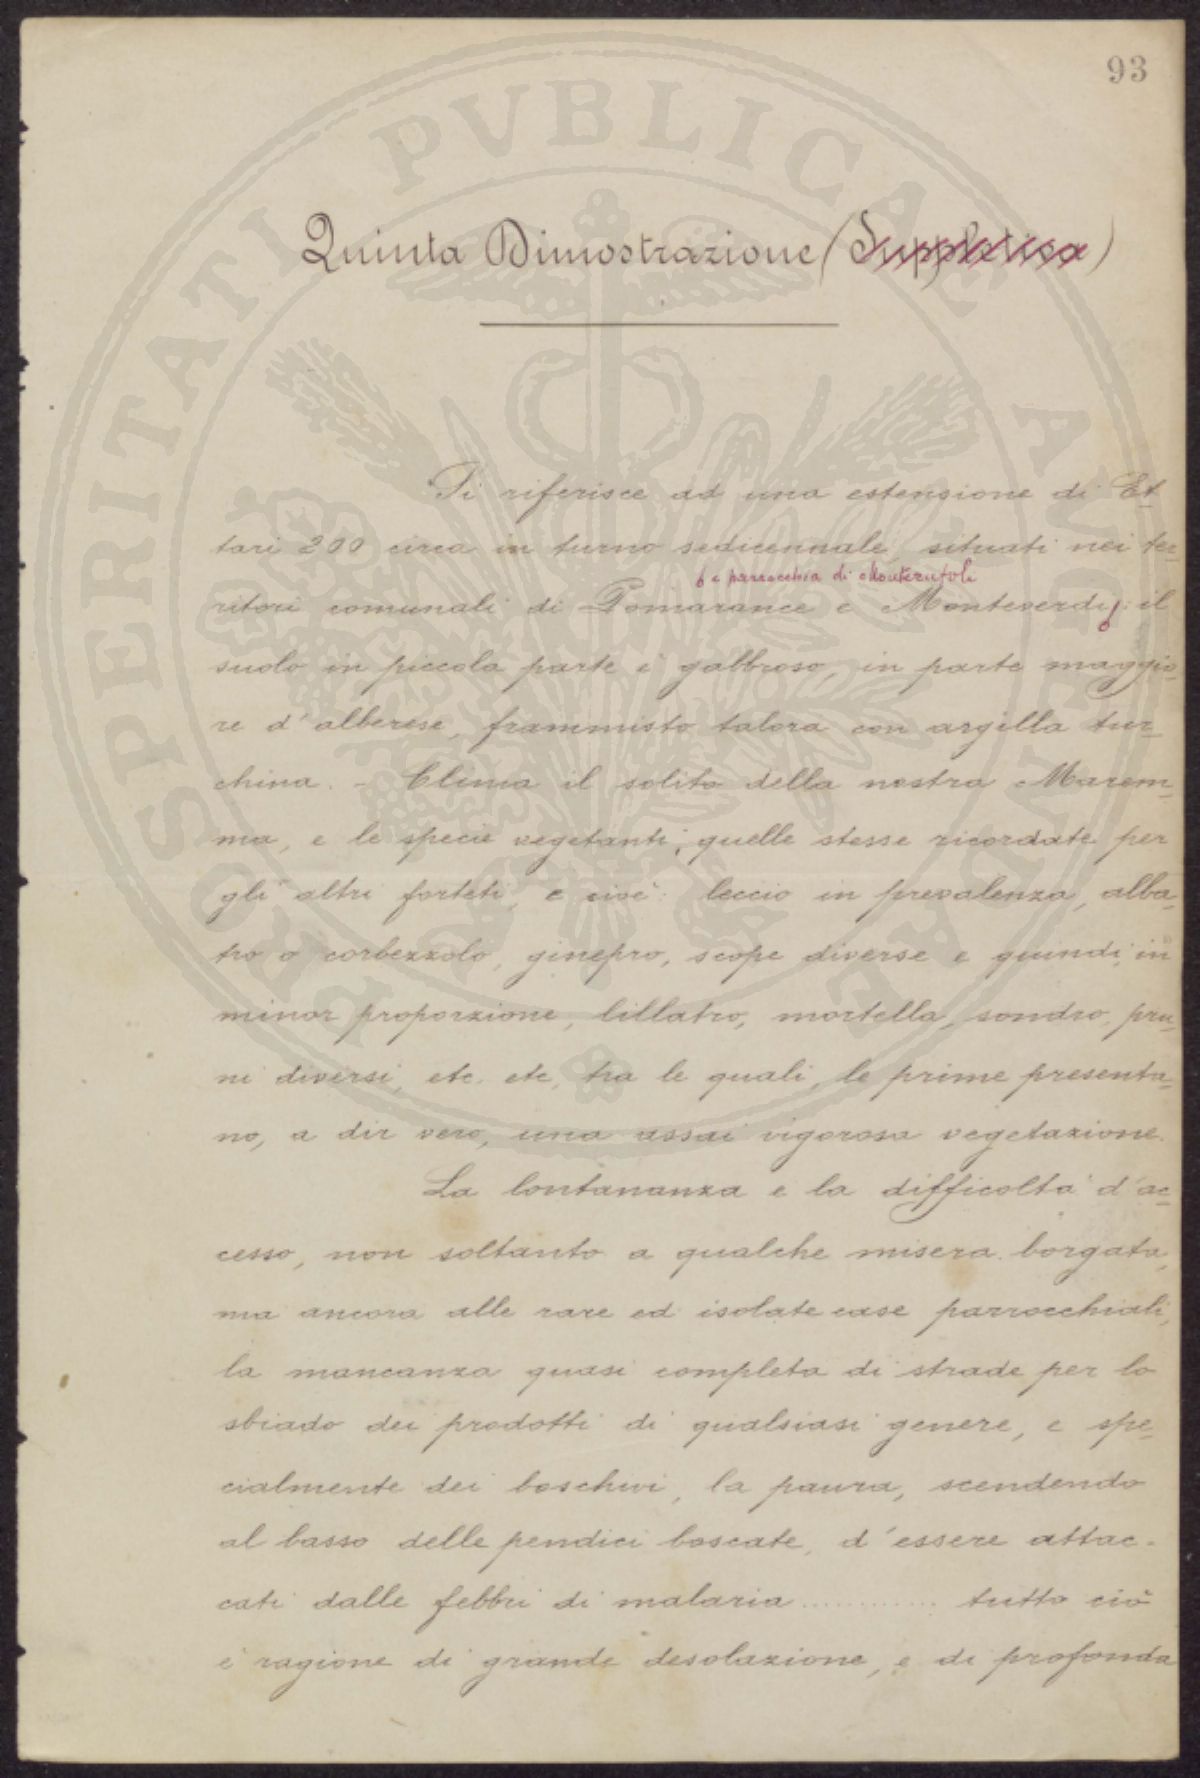 93
Quinta Dimostrazione (Suppletiva)
Si riferisce ad una estensione di Et-
tari 200 circa in turno sedicennale, situati nei ter-
e parrocchia di Monterufoli
ritori comunali di Pomarance e Monteverdi: il
suolo in piccola parte è gabbroso, in parte maggio-
re d'alberese, frammisto talora con argilla tur-
china. - Clima il solito della nostra Marem-
ma, e le specie vegetanti, quelle stesse ricordate per
gli altri forteti, e cioè: leccio in prevalenza, alba-
tro o corbezzolo, ginepro, scope diverse e quindi, in
minor proporzione, lillatro, mortella, sondro, pru-
ni diversi, etc. etc, tra le quali, le prime presenta-
no, a dir vero, una assai vigorosa vegetazione.
La lontananza e la difficoltà d'ac-
cesso, non soltanto a qualche misera borgata,
ma ancora alle rare ed isolate case parrocchiali,
la mancanza quasi completa di strade per lo
sbiado dei prodotti di qualsiasi genere, e spe-
cialmente dei boschivi, la paura, scendendo
al basso delle pendici boscate, d'essere attac-
cati dalle febbri di malaria ............ tutto ciò
è ragione di grande desolazione, e di profonda
PROSPERITATI PVBLICAE AVGENDAE